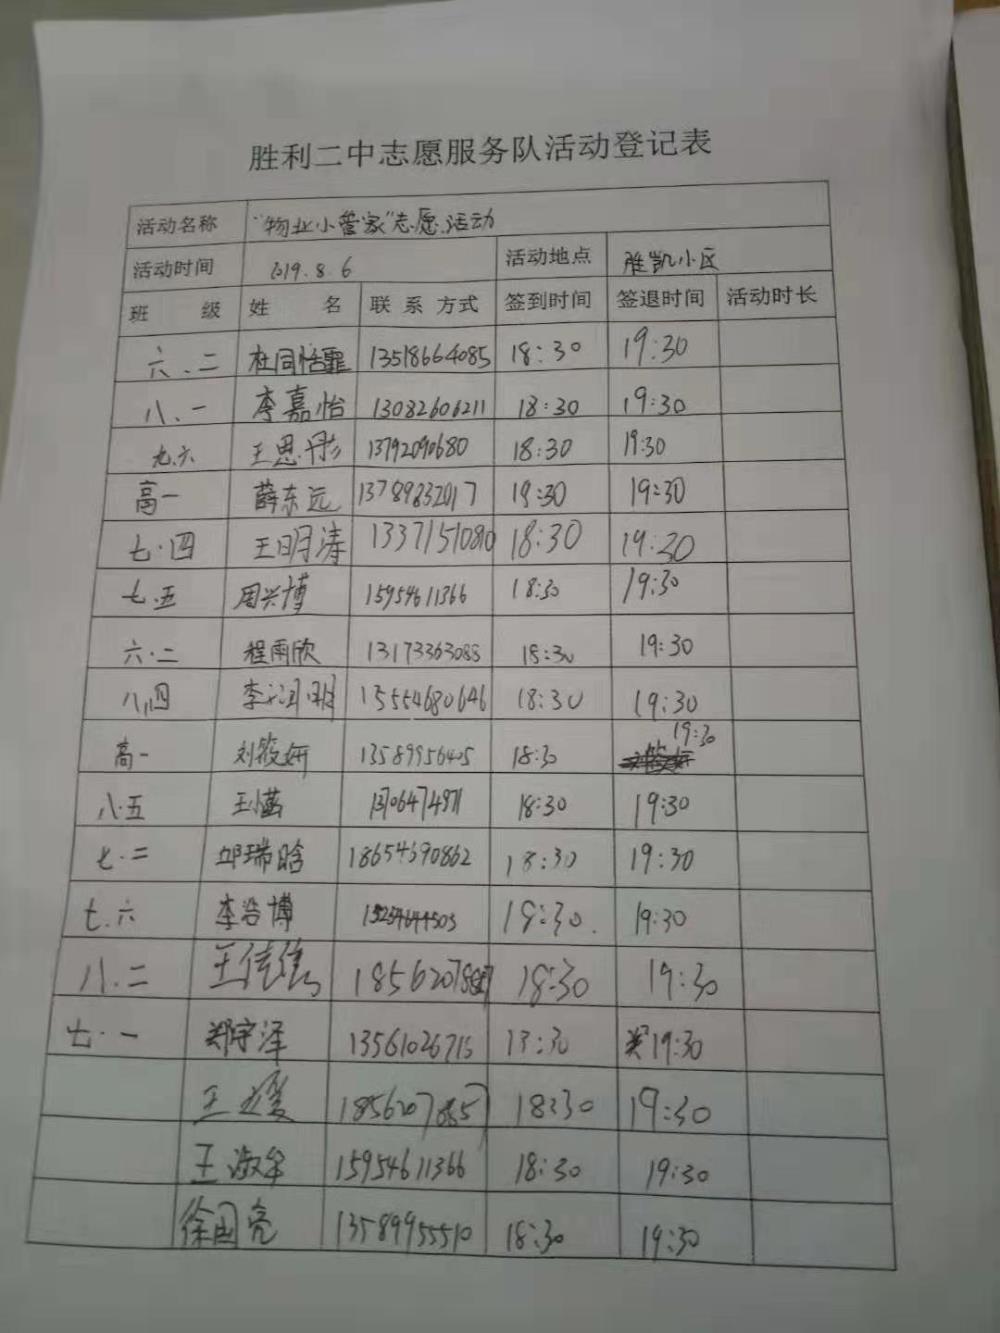 胜利二中志愿服务队活动登记表
活动名称 "物业小管家"志愿活动
活动时间 2019.8.6 活动地点 胜凯小区
班 级 姓 名 联系方式 签到时间 签退时间 活动时长
六.二 杜同恬霏 13518664085 18:30 19:30
八.一 李嘉怡 13082606211 18:30 19:30
九.六 王思彤 13792090680 18:30 19:30
高一 薛东远 13789832017 19:30 19:30
七.四 王明涛 13371510810 18:30 19:30
七.五 周兴博 15954611366 18:30 19:30
六.二 程雨欣 13173363088 18:30 19:30
八.四 李润明 15554680646 18:30 19:30
高一 刘筱妍 13589956405 18:30 19:30
八.五 王 13706474971 18:30 19:30
七.二 邱瑞晗 18654690862 18:30 19:30
七.六 李浩博 18:30. 19:30
八.二 王 18:30 19:30
七.一 郑宇泽 13561026715 18:30 19:30
王媛 18:30 19:30
王淑华 15954611366 18:30 19:30
徐国亮 13589955510 18:30 19:30